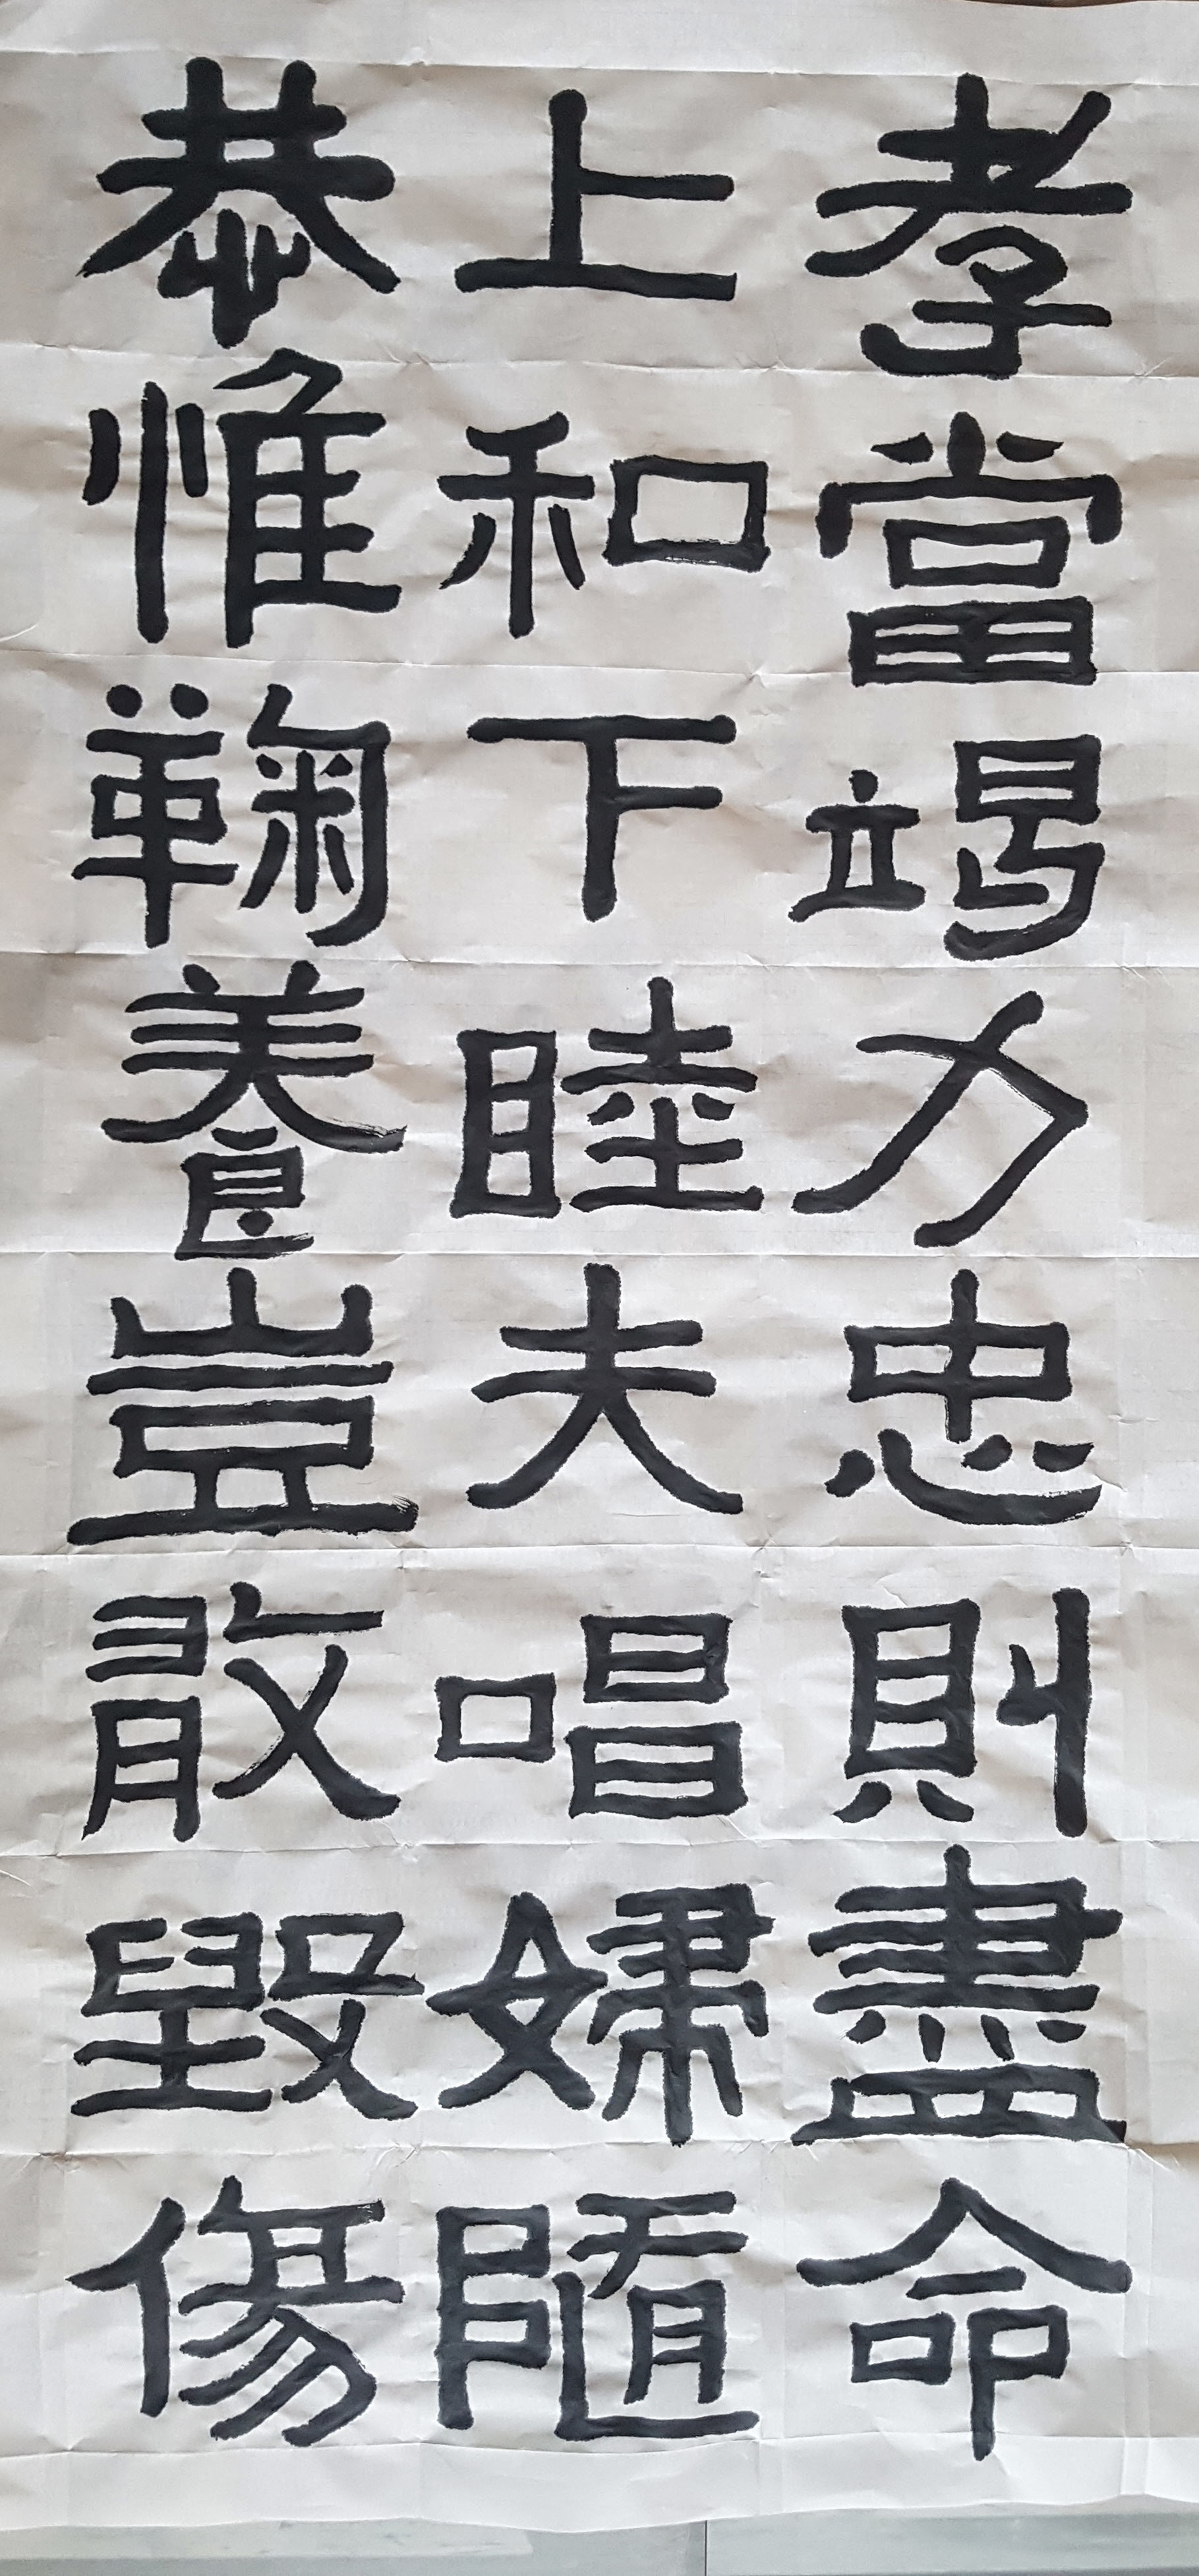 孝當竭力忠則盡命
上和下睦夫唱婦隨
恭惟鞠養豈敢毀傷